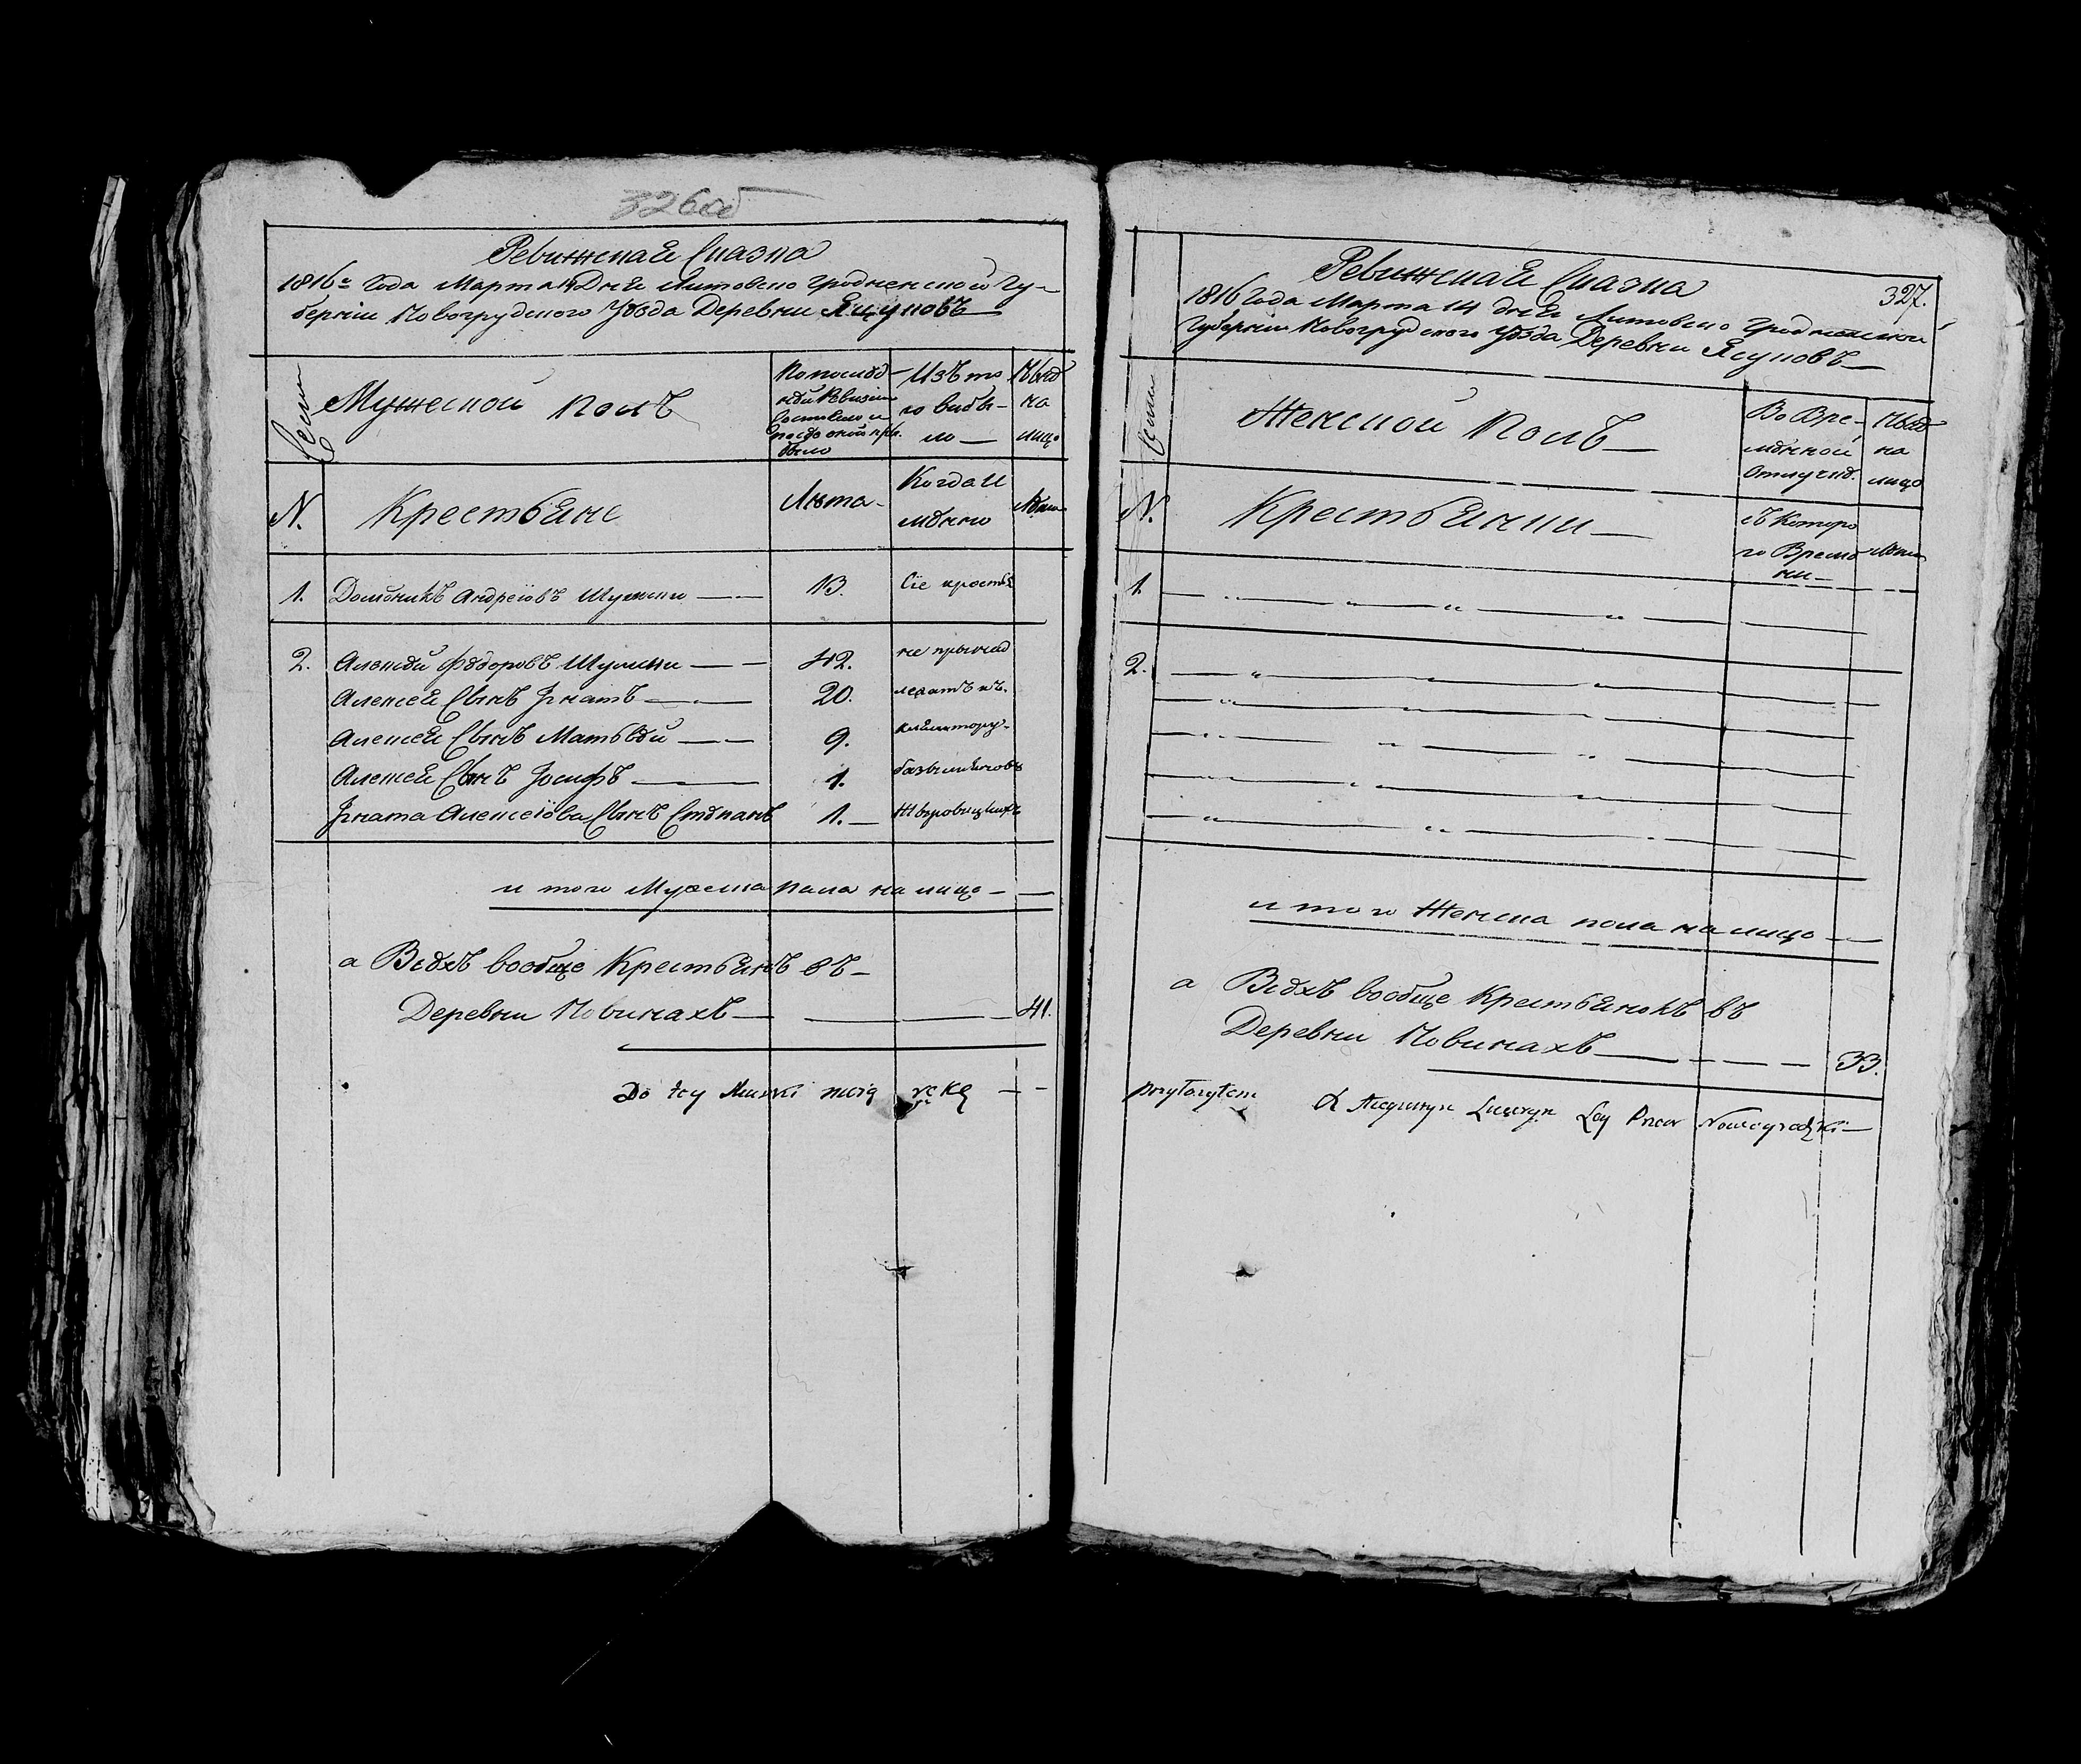 326об
Ревижская Сказка
1816го Года Марта 14 Дня Литовско Гродненской Гу-
берніи Новогрудского Уѣзда Деревни Ясуновъ
Семьи
Мужеской полъ
По послѣд-
ней Ревизіи
состояло и
послѣ оной при-
было
Изъ то
го выбы-
ло
Нынѣ
на
лицо
N.
Крестьяне
Лѣта
Когда и
имѣнно
Лѣта
1. Андреіовъ 13. Сіе крестья
2. Алексѣй Ѳедоровъ 42. не принад
Алексея Сынъ Игнатъ 20. лежатъ къ
Алексея Сынъ Матвѣй 9.
Алексея Сынъ Іосифъ 1. базыліяновъ
Игната Алексеіова Сынъ Степанъ 1. Жыровицкихъ
и того Мужеска пола на лицо
а Всѣхъ вообще Крестьянъ въ
Деревни Новинахъ 41.
Do tey
327.
Ревижская Сказка
1816 Года Марта 14 дня Литовско Гродненской
Губерніи Новогрудского Уѣзда Деревни Ясуновъ
Семьи
Женской Полъ
Во Вре-
мѣнной
отлучкѣ
Нынѣ
на
лицо
N.
Крестьянки
съ Которо
го Време
ни
Лѣта
1.
2.
и того Женска пола на лицо
а Всѣхъ вообще Крестьянокъ въ
Деревни Новинахъ 33.
Nowogrodzki